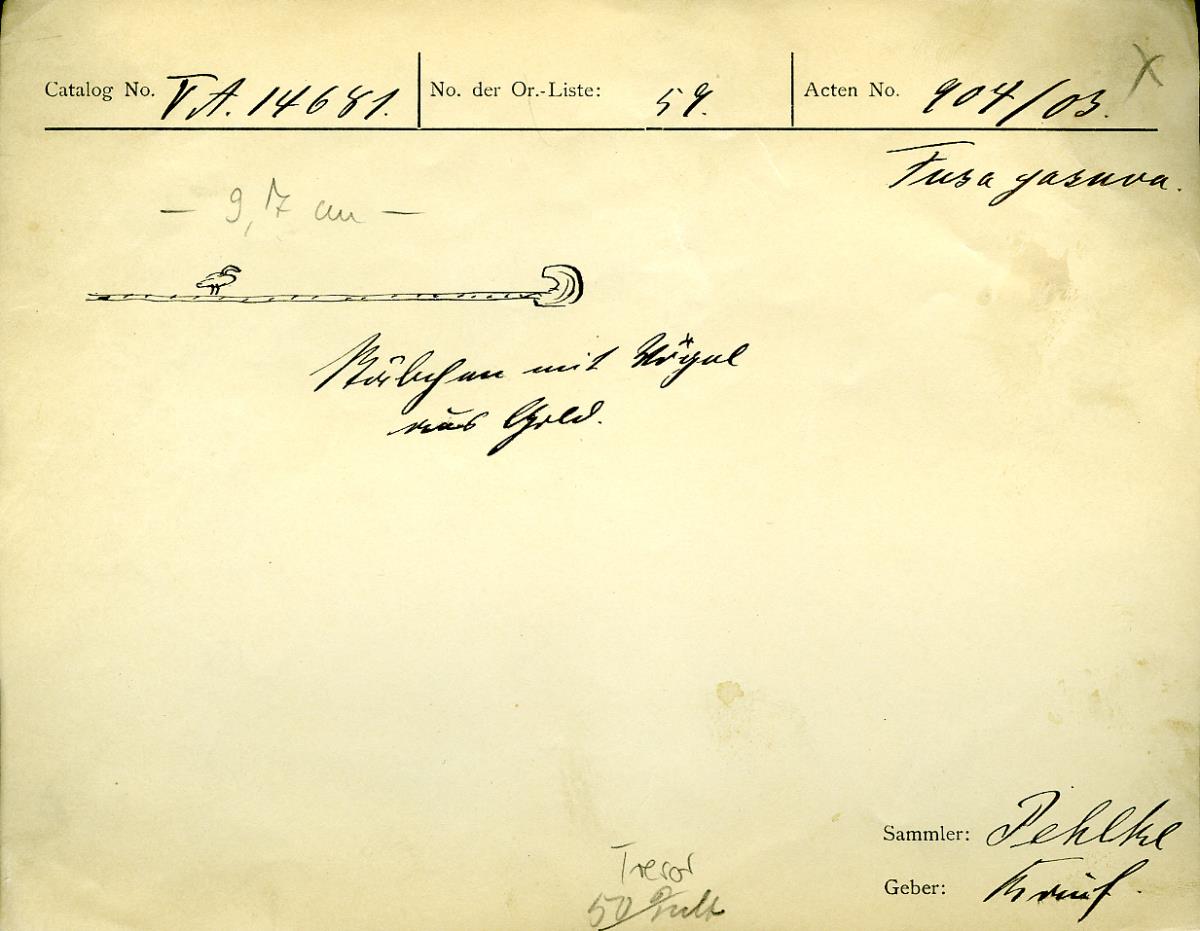 Catalog No. V.A. 14681. No. der Or.-Liste: 59. Acten No. 904/03. X
Fusagasuva.
— 9,7 cm —
Stäbchen mit Vögel
aus Gold.
Sammler: Pehlke
Geber: Kauf.
Tresor
50